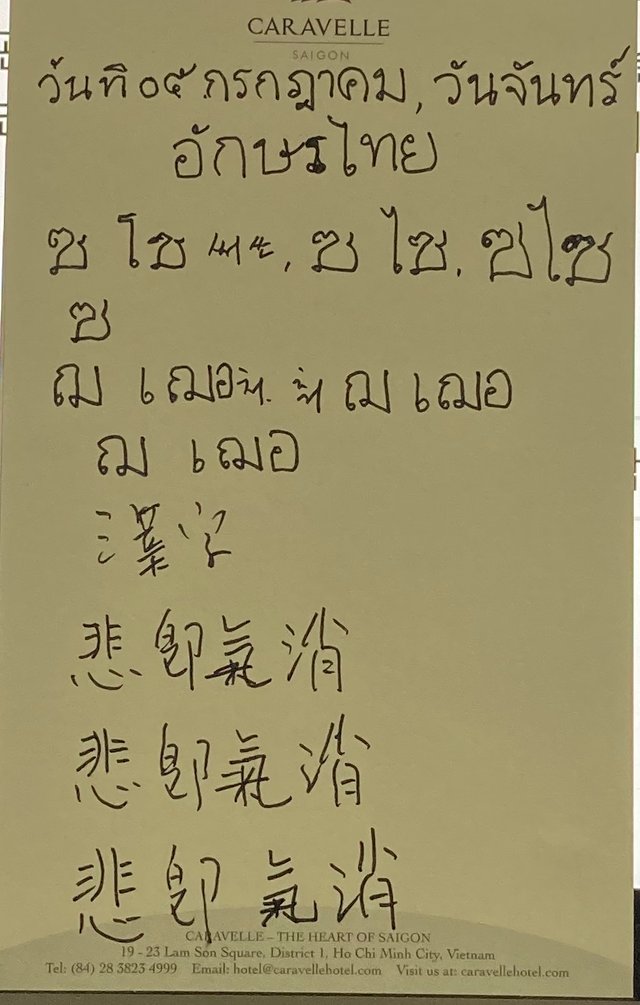 CARAVELLE
SAIGON
วันที ๐๕ กรกฎาคม, วันจันทร์
อักษรไทย
ซ โซ ซ ไซ. ซ ไซ
ซ
ฌ เฌอ ฌ เฌอ
ฌ เฌอ
漢字
悲即氣消
悲即氣消
悲即氣消
CARAVELLE – THE HEART OF SAIGON
19 - 23 Lam Son Square, District 1, Ho Chi Minh City, Vietnam
Tel: (84) 28 3823 4999 Email: hotel@caravellehotel.com Visit us at: caravellehotel.com